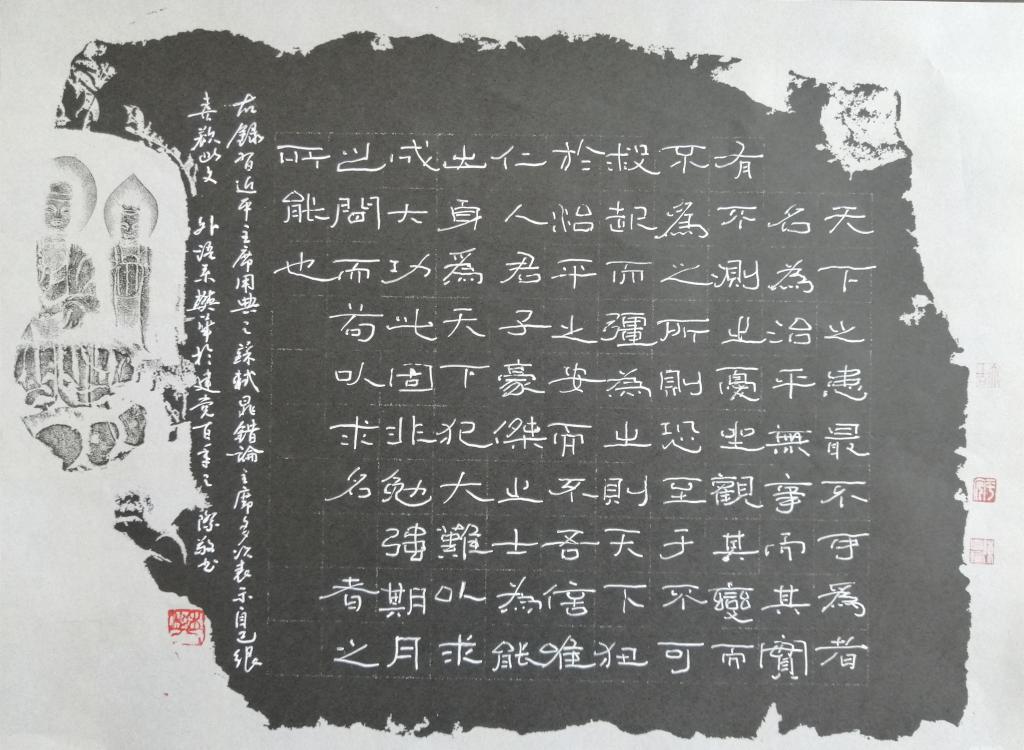 天下之患最不可爲者
名為治平無事而其實
有不測之憂坐觀其變而
不爲之所則恐至于不可
救起而彊為之則天下狃
於治平之安而不吾信惟
仁人君子豪傑之士為能
出身爲天下犯大難以求
成大功此固非勉強期月
之間而苟以求名者之
所能也
右錄習近平主席用典之蘇軾晁錯論主席多次表示自己很
喜歡此文 外語系於建党百年之際敬书